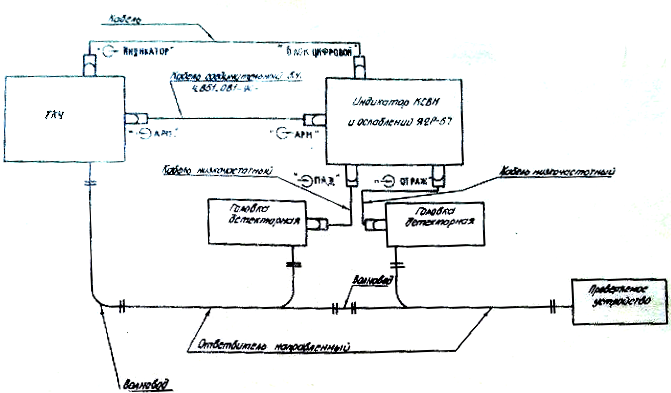 Кабель
"⊖ ИНДИКАТОР"
"БЛОК ЦИФРОВОЙ"
Кабель соединительный ВЧ
ГКЧ
Индикатор КСВН
и ослаблений Я2Р-67
"⊖ АРМ"
"⊖ АРМ"
Кабель низкочастотный
"⊖ ПАД"
"⊖ ОТРАЖ"
Кабель низкочастотный
Головка
детекторная
Головка
детекторная
Волновод
Проверяемое
устройство
Ответвитель направленный
Волновод